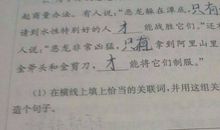 起商量办法。有人说,“恶龙躲在潭底,只有
请到水性特别好的人 才 能战胜它们。”还
人说:“恶龙非常凶猛,只有 拿到阿里山里
金斧头和金剪刀, 才 能将它们制服。”
(1)在横线上填上恰当的关联词,并用这组关
造个句子。